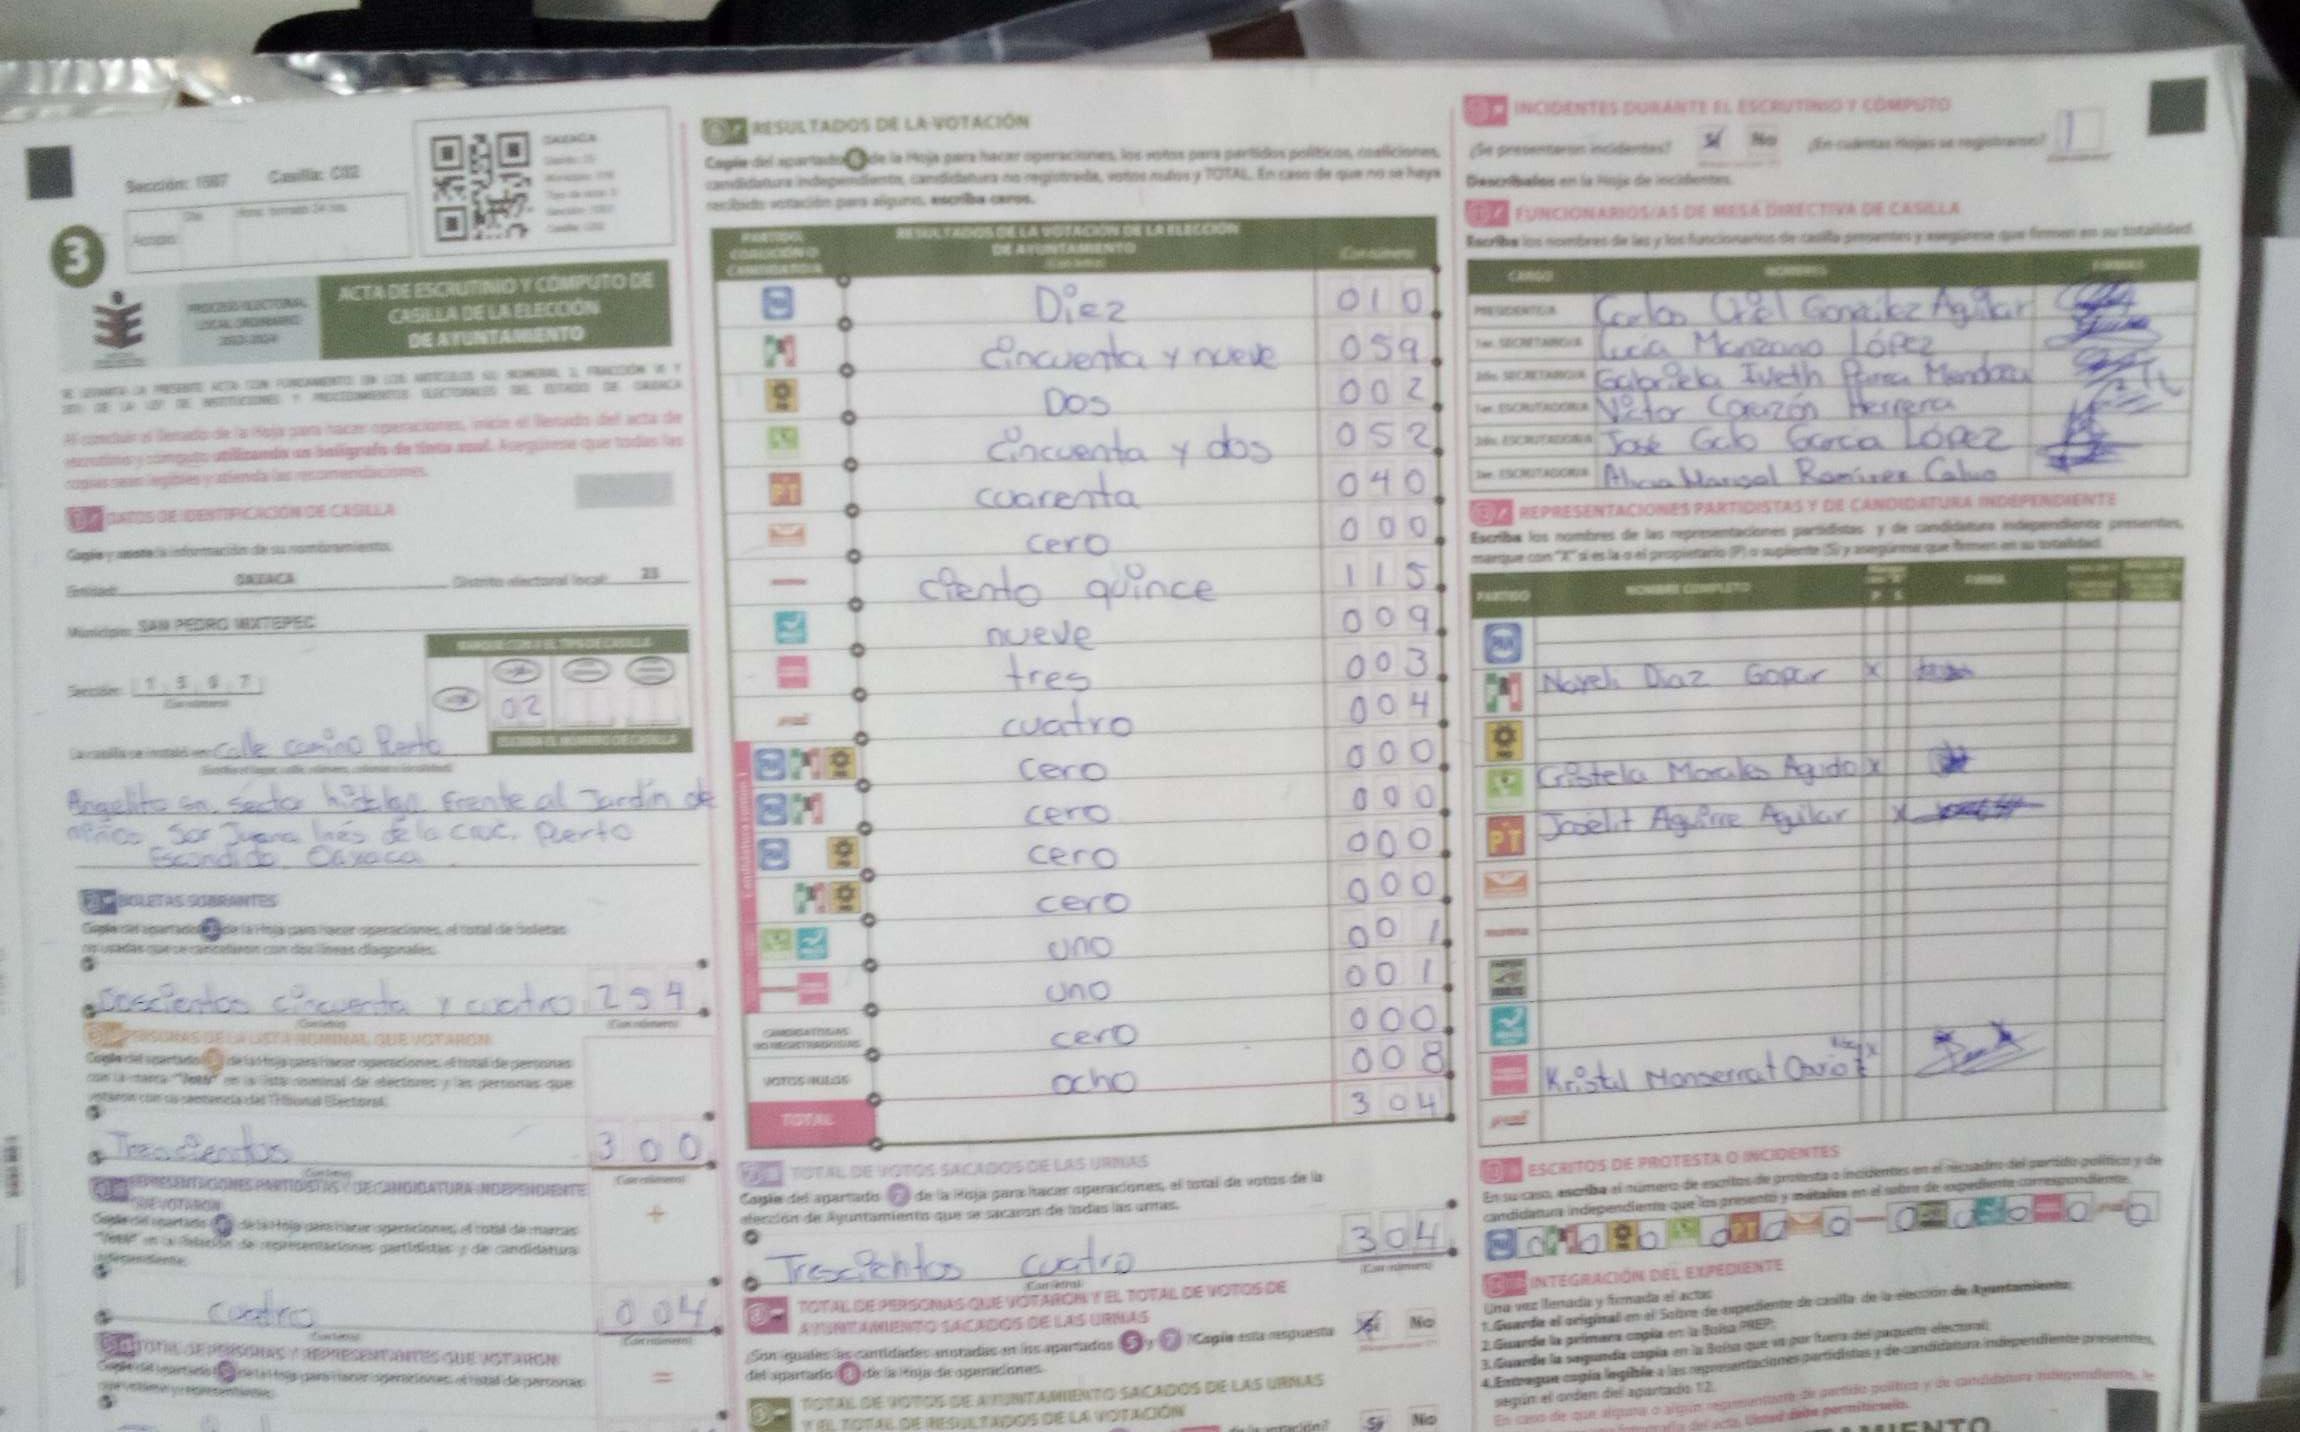 Sección: 1567 Casilla: C02
OAXACA
Acopio:
Día
Hora: formato 24 hrs.
3
PROCESO ELECTORAL
LOCAL ORDINARIO
2023-2024
ACTA DE ESCRUTINIO Y CÓMPUTO DE
CASILLA DE LA ELECCIÓN
DE AYUNTAMIENTO
SE LEVANTA LA PRESENTE ACTA CON FUNDAMENTO EN LOS ARTÍCULOS
DE LA LEY DE INSTITUCIONES Y PROCEDIMIENTOS ELECTORALES DEL ESTADO DE OAXACA
Al concluir el llenado de la Hoja para hacer operaciones, inicie el llenado del acta de
escrutinio y cómputo utilizando un bolígrafo de tinta azul. Asegúrese que todas las
copias sean legibles y atienda las recomendaciones.
1 DATOS DE IDENTIFICACIÓN DE CASILLA
Copie y anote la información de su nombramiento.
Entidad: OAXACA Distrito electoral local: 23
Municipio: SAN PEDRO MIXTEPEC
Sección: 1 5 6 7
(Con número)
02
ESCRIBA EL NÚMERO DE CASILLA
La casilla se instaló en: Calle camino Puerto
Angelito sn. sector hidalgo Frente al Jardín de
niños Sor Juana Inés de la Cruz. Puerto
Escondido, Oaxaca
2 BOLETAS SOBRANTES
Copie del apartado 2 de la Hoja para hacer operaciones, el total de boletas
no usadas que se cancelaron con dos líneas diagonales.
Doscientos cincuenta y cuatro 254
(Con letra) (Con número)
3 PERSONAS DE LA LISTA NOMINAL QUE VOTARON
Copie del apartado 3 de la Hoja para hacer operaciones, el total de personas
con la marca "Votó" en la lista nominal de electores y las personas que
votaron con su sentencia del Tribunal Electoral.
Trescientos 300
(Con letra) (Con número)
REPRESENTACIONES PARTIDISTAS Y DE CANDIDATURA INDEPENDIENTE
QUE VOTARON
Copie del apartado 4 de la Hoja para hacer operaciones, el total de marcas
"Votó" en la relación de representaciones partidistas y de candidatura
independiente.
+
cuatro 004
(Con letra) (Con número)
TOTAL DE PERSONAS Y REPRESENTANTES QUE VOTARON
Copie del apartado 5 de la Hoja para hacer operaciones, el total de personas
=
6 RESULTADOS DE LA VOTACIÓN
Copie del apartado 6 de la Hoja para hacer operaciones, los votos para partidos políticos, coaliciones,
candidatura independiente, candidatura no registrada, votos nulos y TOTAL. En caso de que no se haya
recibido votación para alguno, escriba ceros.
PARTIDO, COALICIÓN O CANDIDATO/A
RESULTADOS DE LA VOTACIÓN DE LA ELECCIÓN
DE AYUNTAMIENTO
(Con letra) (Con número)
Diez 010
cincuenta y nueve 059
Dos 002
cincuenta y dos 052
PT cuarenta 040
cero 000
ciento quince 115
nueve 009
tres 003
cuatro 004
cero 000
cero 000
cero 000
cero 000
uno 001
uno 001
CANDIDATOS/AS NO REGISTRADOS/AS cero 000
VOTOS NULOS ocho 008
TOTAL 304
7 TOTAL DE VOTOS SACADOS DE LAS URNAS
Copie del apartado 7 de la Hoja para hacer operaciones, el total de votos de la
elección de Ayuntamiento que se sacaron de todas las urnas.
Trescientos cuatro 304
(Con letra) (Con número)
8 TOTAL DE PERSONAS QUE VOTARON Y EL TOTAL DE VOTOS DE
AYUNTAMIENTO SACADOS DE LAS URNAS
¿Son iguales las cantidades anotadas en los apartados 5 y 7? Copie esta respuesta
del apartado 8 de la Hoja de operaciones.
Sí No
9 TOTAL DE VOTOS DE AYUNTAMIENTO SACADOS DE LAS URNAS
Y EL TOTAL DE RESULTADOS DE LA VOTACIÓN
Sí No
INCIDENTES DURANTE EL ESCRUTINIO Y CÓMPUTO
¿Se presentaron incidentes? Sí No ¿En cuántas Hojas se registraron? 1
Descríbalos en la Hoja de incidentes.
FUNCIONARIOS/AS DE MESA DIRECTIVA DE CASILLA
Escriba los nombres de las y los funcionarios de casilla presentes y asegúrese que firmen en su totalidad.
CARGO NOMBRES FIRMAS
PRESIDENTE/A Carlos Uriel González Aguilar
1er. SECRETARIO/A Lucía Manzano López
2do. SECRETARIO/A Gabriela Iveth Parra Mendoza
1er. ESCRUTADOR/A Víctor Corazón Herrera
2do. ESCRUTADOR/A José Galo García López
3er. ESCRUTADOR/A Alicia Marisol Ramírez Calvo
REPRESENTACIONES PARTIDISTAS Y DE CANDIDATURA INDEPENDIENTE
Escriba los nombres de las representaciones partidistas y de candidatura independiente presentes,
marque con "X" si es la o el propietario (P) o suplente (S) y asegúrese que firmen en su totalidad.
PARTIDO NOMBRE COMPLETO P S FIRMA
Nayeli Diaz Gopar X
Cristela Morales Agudo X
PT Joselit Aguirre Aguilar X
morena
Kristal Monserrat X
ESCRITOS DE PROTESTA O INCIDENTES
En su caso, escriba el número de escritos de protesta o incidentes en el recuadro del partido político y de
candidatura independiente que los presentó y métalos en el sobre de expediente correspondiente.
0 0 0 0 PT 0 0 0 0 0 0 0
INTEGRACIÓN DEL EXPEDIENTE
Una vez llenada y firmada el acta:
1. Guarde el original en el Sobre de expediente de casilla de la elección de Ayuntamiento;
2. Guarde la primera copia en la Bolsa PREP;
3. Guarde la segunda copia en la Bolsa que va por fuera del paquete electoral;
4. Entregue copia legible a las representaciones partidistas y de candidatura independiente presentes,
según el orden del apartado 12.